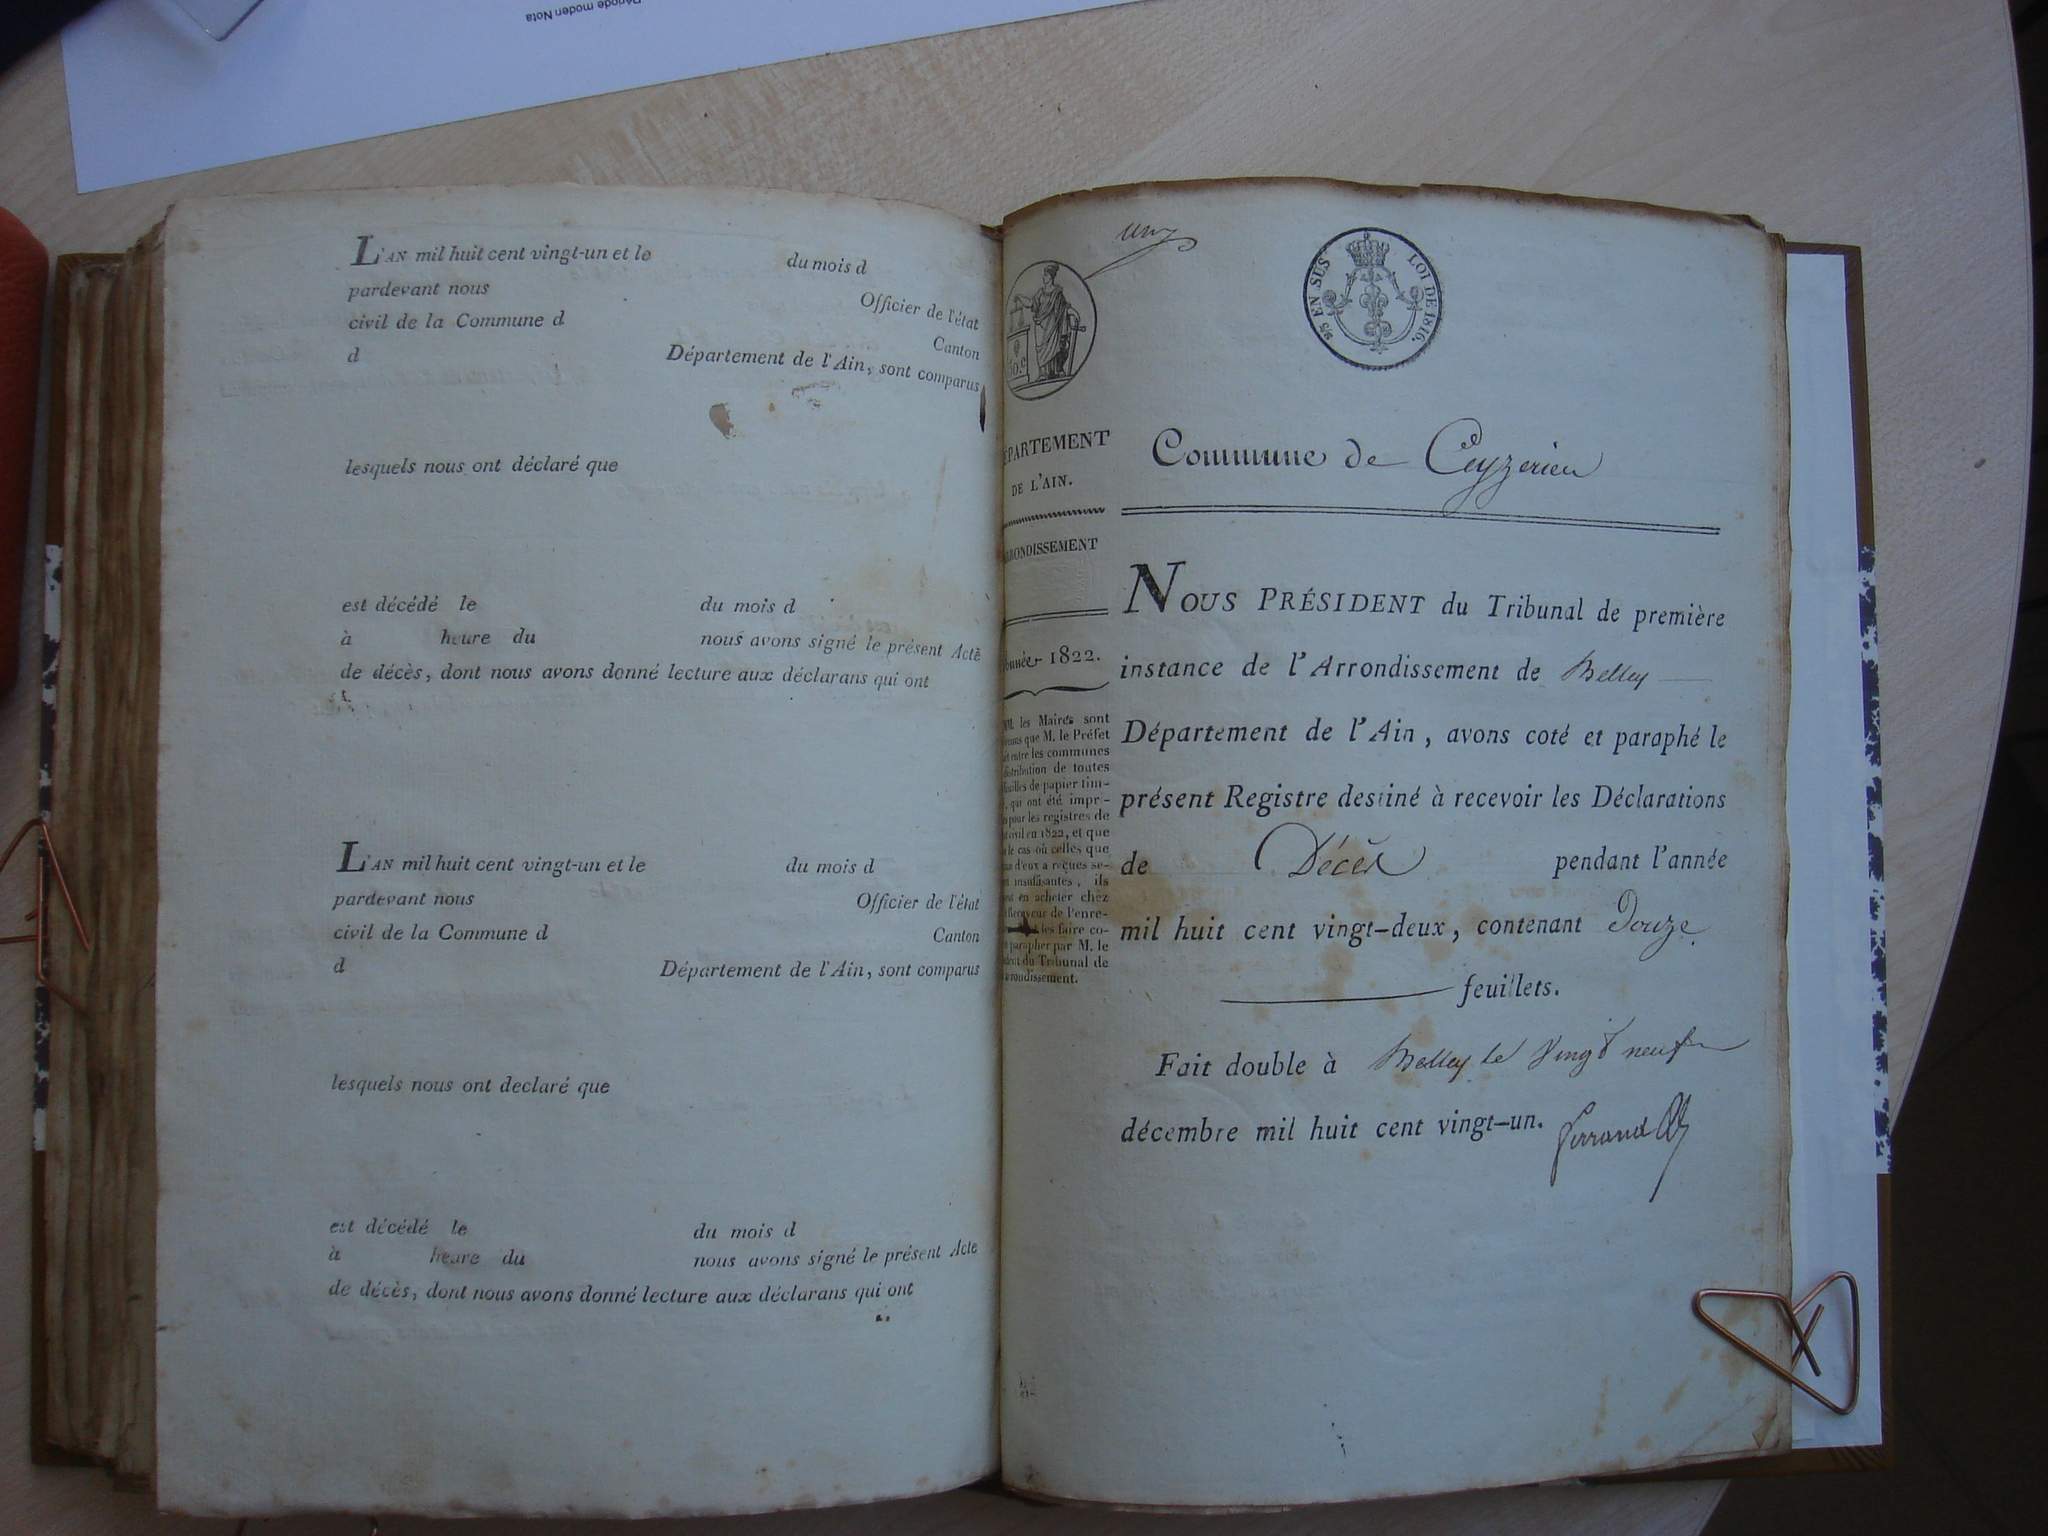 Période moden Nota
L'AN mil huit cent vingt-un et le du mois d
pardevant nous Officier de l'état
civil de la Commune d Canton
d Département de l'Ain, sont comparus
lesquels nous ont déclaré que
est décédé le du mois d
à heure du nous avons signé le présent Acte
de décès, dont nous avons donné lecture aux déclarans qui ont
L'AN mil huit cent vingt-un et le du mois d
pardevant nous Officier de l'état
civil de la Commune d Canton
d Département de l'Ain, sont comparus
lesquels nous ont declaré que
est décédé le du mois d
à heure du nous avons signé le présent Acte
de décès, dont nous avons donné lecture aux déclarans qui ont
un
EN SUS LOI DE 1816.
50.c
PARTEMENT
DE L'AIN.
ONDISSEMENT
1822.
les Maires sont
que M. le Préfet
entre les communes
distribution de toutes
feuilles de papier tim-
qui ont été impri-
pour les registres de
civil en 1822, et que
le cas où celles que
d'eux a reçues se-
insuffisantes, ils
en acheter chez
de l'enre-
les faire co-
parapher par M. le
du Tribunal de
rrondissement.
Commune de Ceyzerieu
NOUS PRÉSIDENT du Tribunal de première
instance de l'Arrondissement de Belley
Département de l'Ain, avons coté et paraphé le
présent Registre destiné à recevoir les Déclarations
de Décès pendant l'année
mil huit cent vingt-deux, contenant Douze
feuillets.
Fait double à Belley le vingt neuf
décembre mil huit cent vingt-un. ferrand